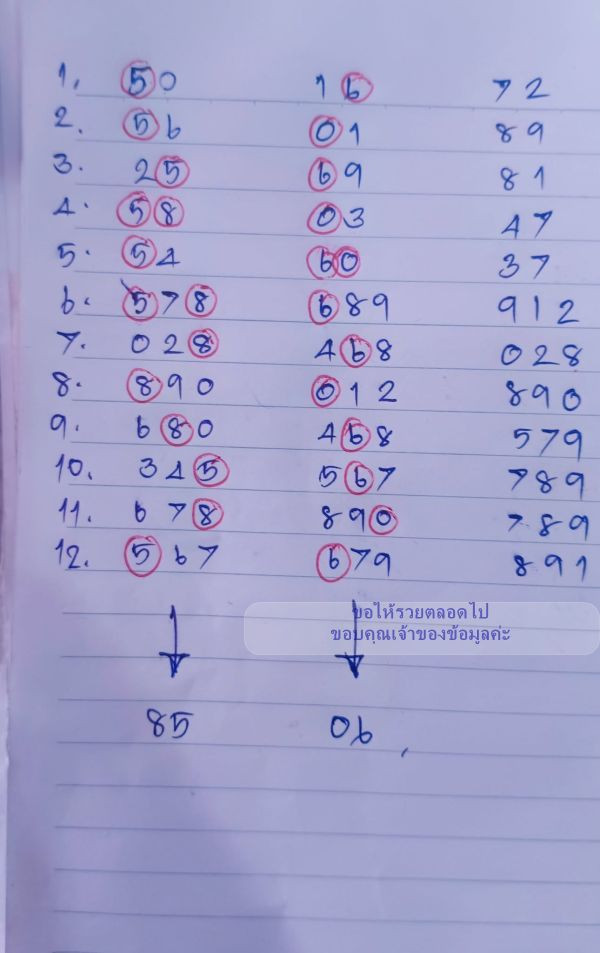 1. 50 16 72
2. 56 01 89
3. 25 69 81
4. 58 03 47
5. 54 60 37
6. 578 689 912
7. 028 468 028
8. 890 012 890
9. 680 468 579
10. 345 567 789
11. 678 890 789
12. 567 679 891
ขอให้รวยตลอดไป
ขอบคุณเจ้าของข้อมูลค่ะ
85 06